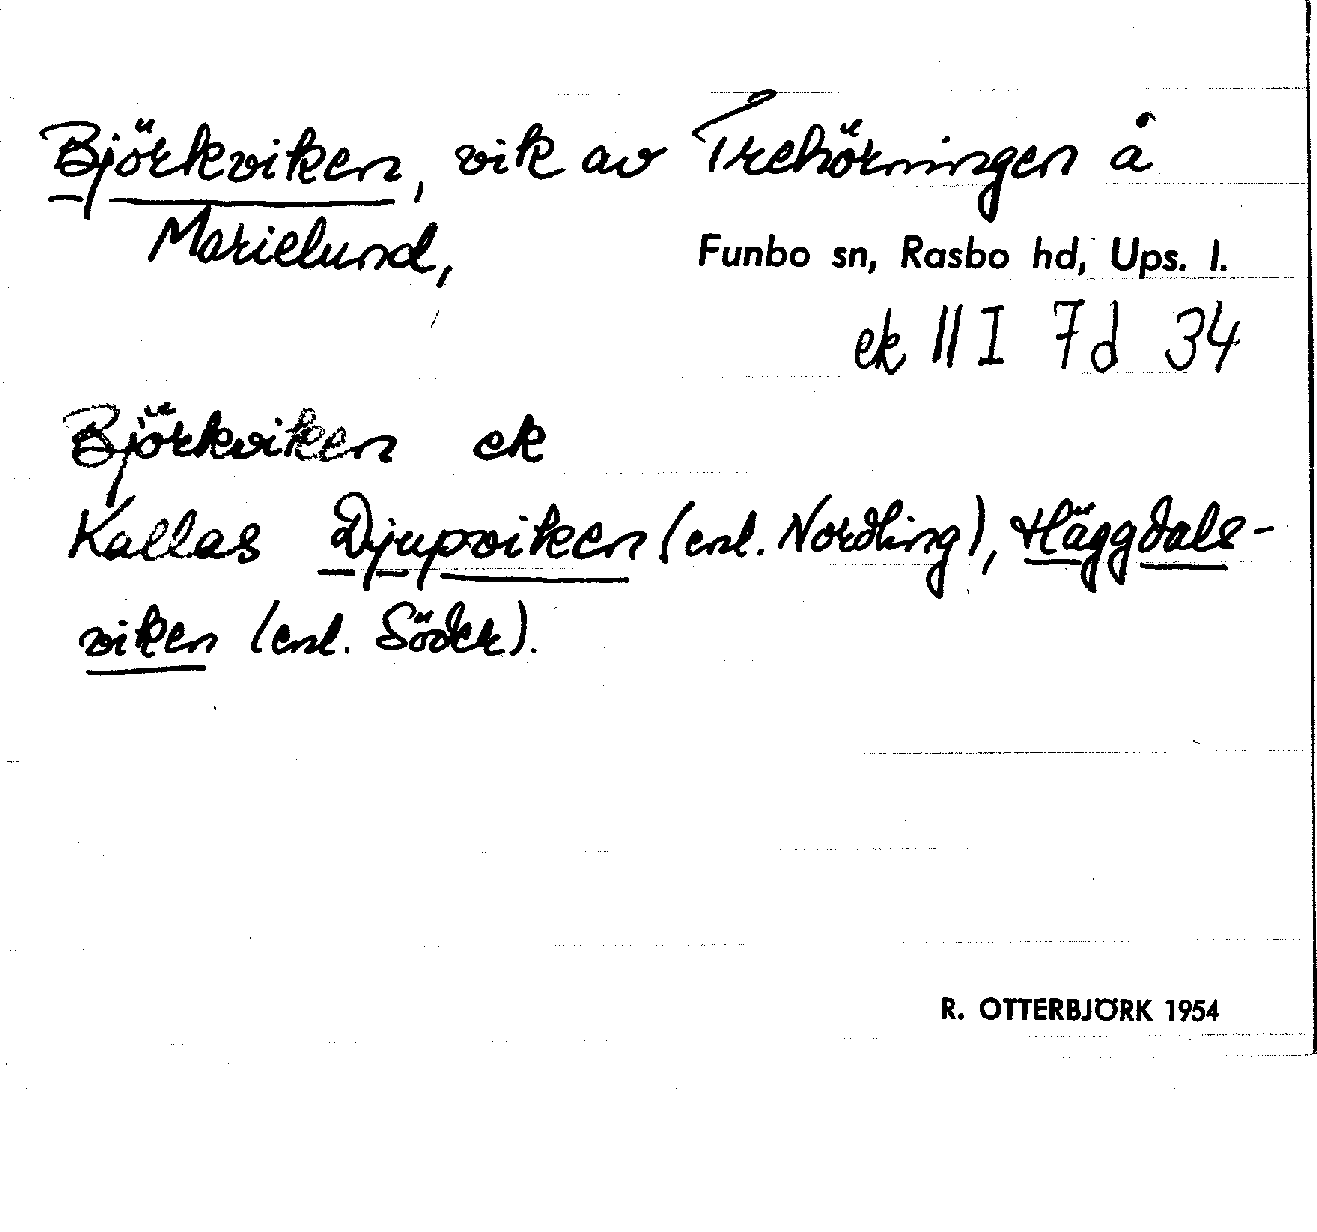 Björkviken, vik av Trehörningen å
Marielund,
Funbo sn, Rasbo hd, Ups. l.
ek 11 I 7d 34
Björkviken ek
Kallas Djupviken (enl. Nordling), Häggdals-
viken (enl. Söder).
R. OTTERBJÖRK 1954